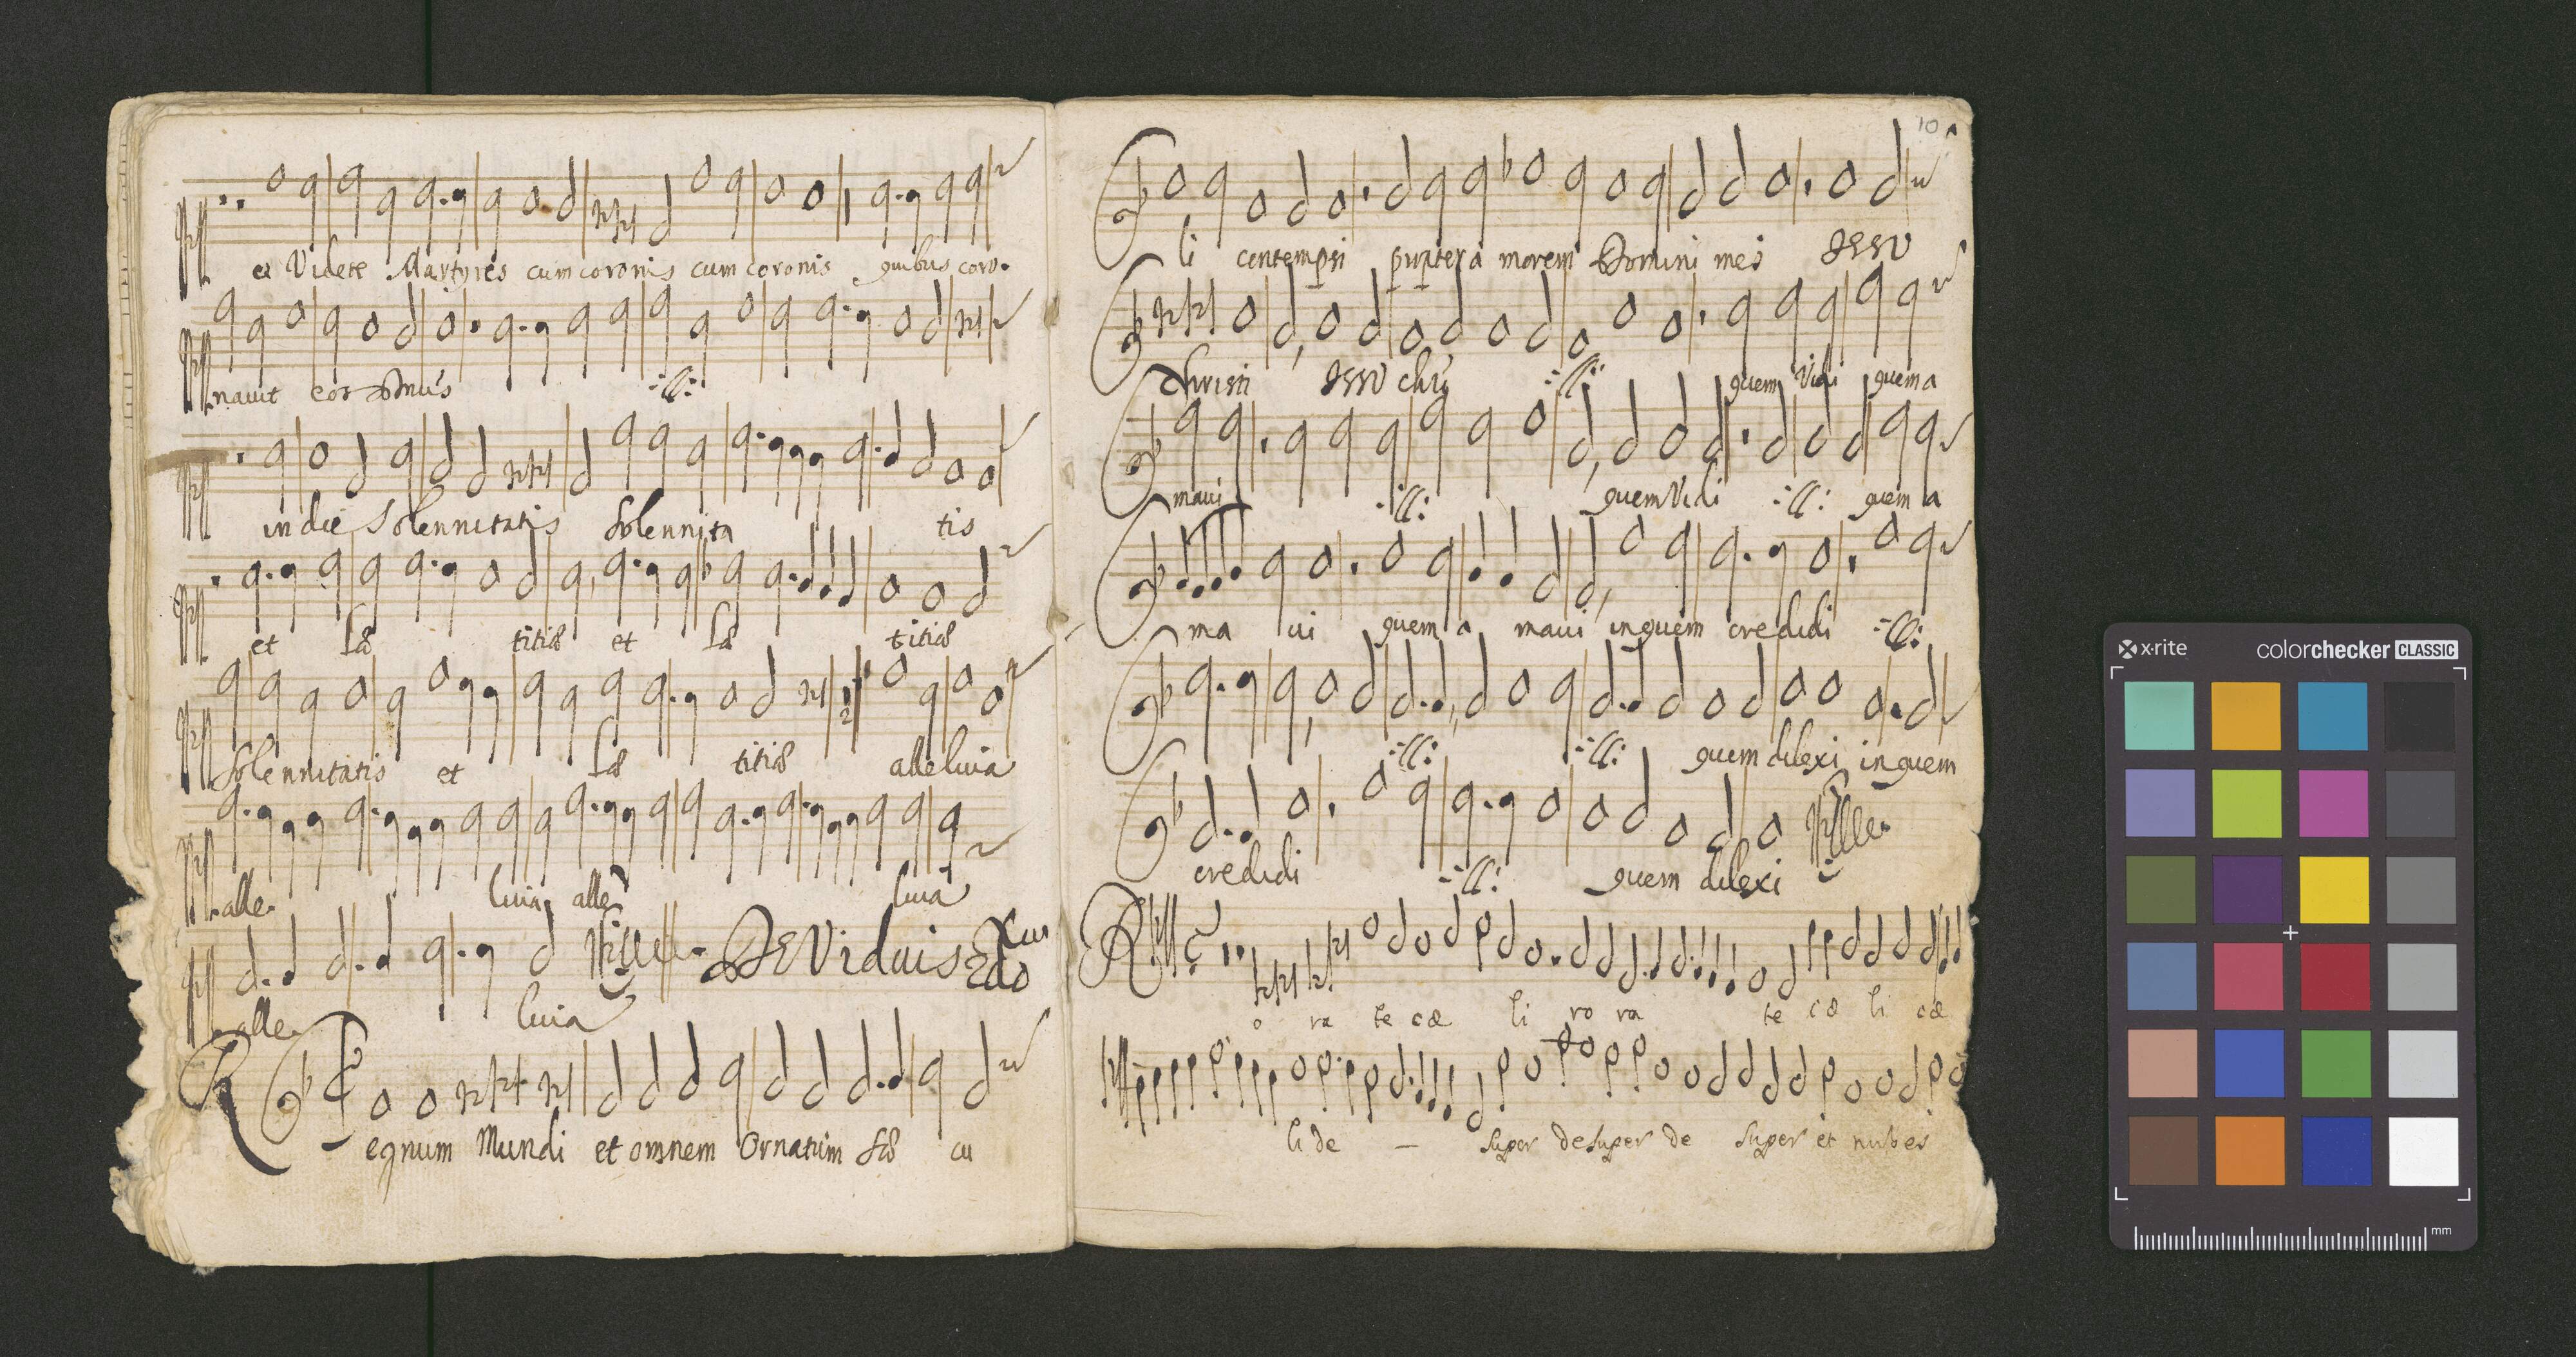 et Videte Martyres cum coronis cum coronis quibus coro-
navit eos Dnus :ll:
in die Solennitatis Solennita tis
et Læ titiæ et Læ titiæ
Solennitatis et Læ titiæ alleluia
alle luia alle luia
De Viduis
alle luia
Regnum Mundi et omnem Ornatum Sæ cu
10
li contempsi propter a morem Domini mei JESU
Christi JESU chri :ll: quem Vidi quem a
mavi :ll: quem Vidi :ll: quem a
ma vi quem a mavi in quem credidi :ll:
:ll: :ll: quem dilexi in quem
credidi :ll: quem dilexi
R o ra te cæ li ro ra te cæ li cæ
li de – super desuper de super et nubes
x·rite colorchecker CLASSIC
mm